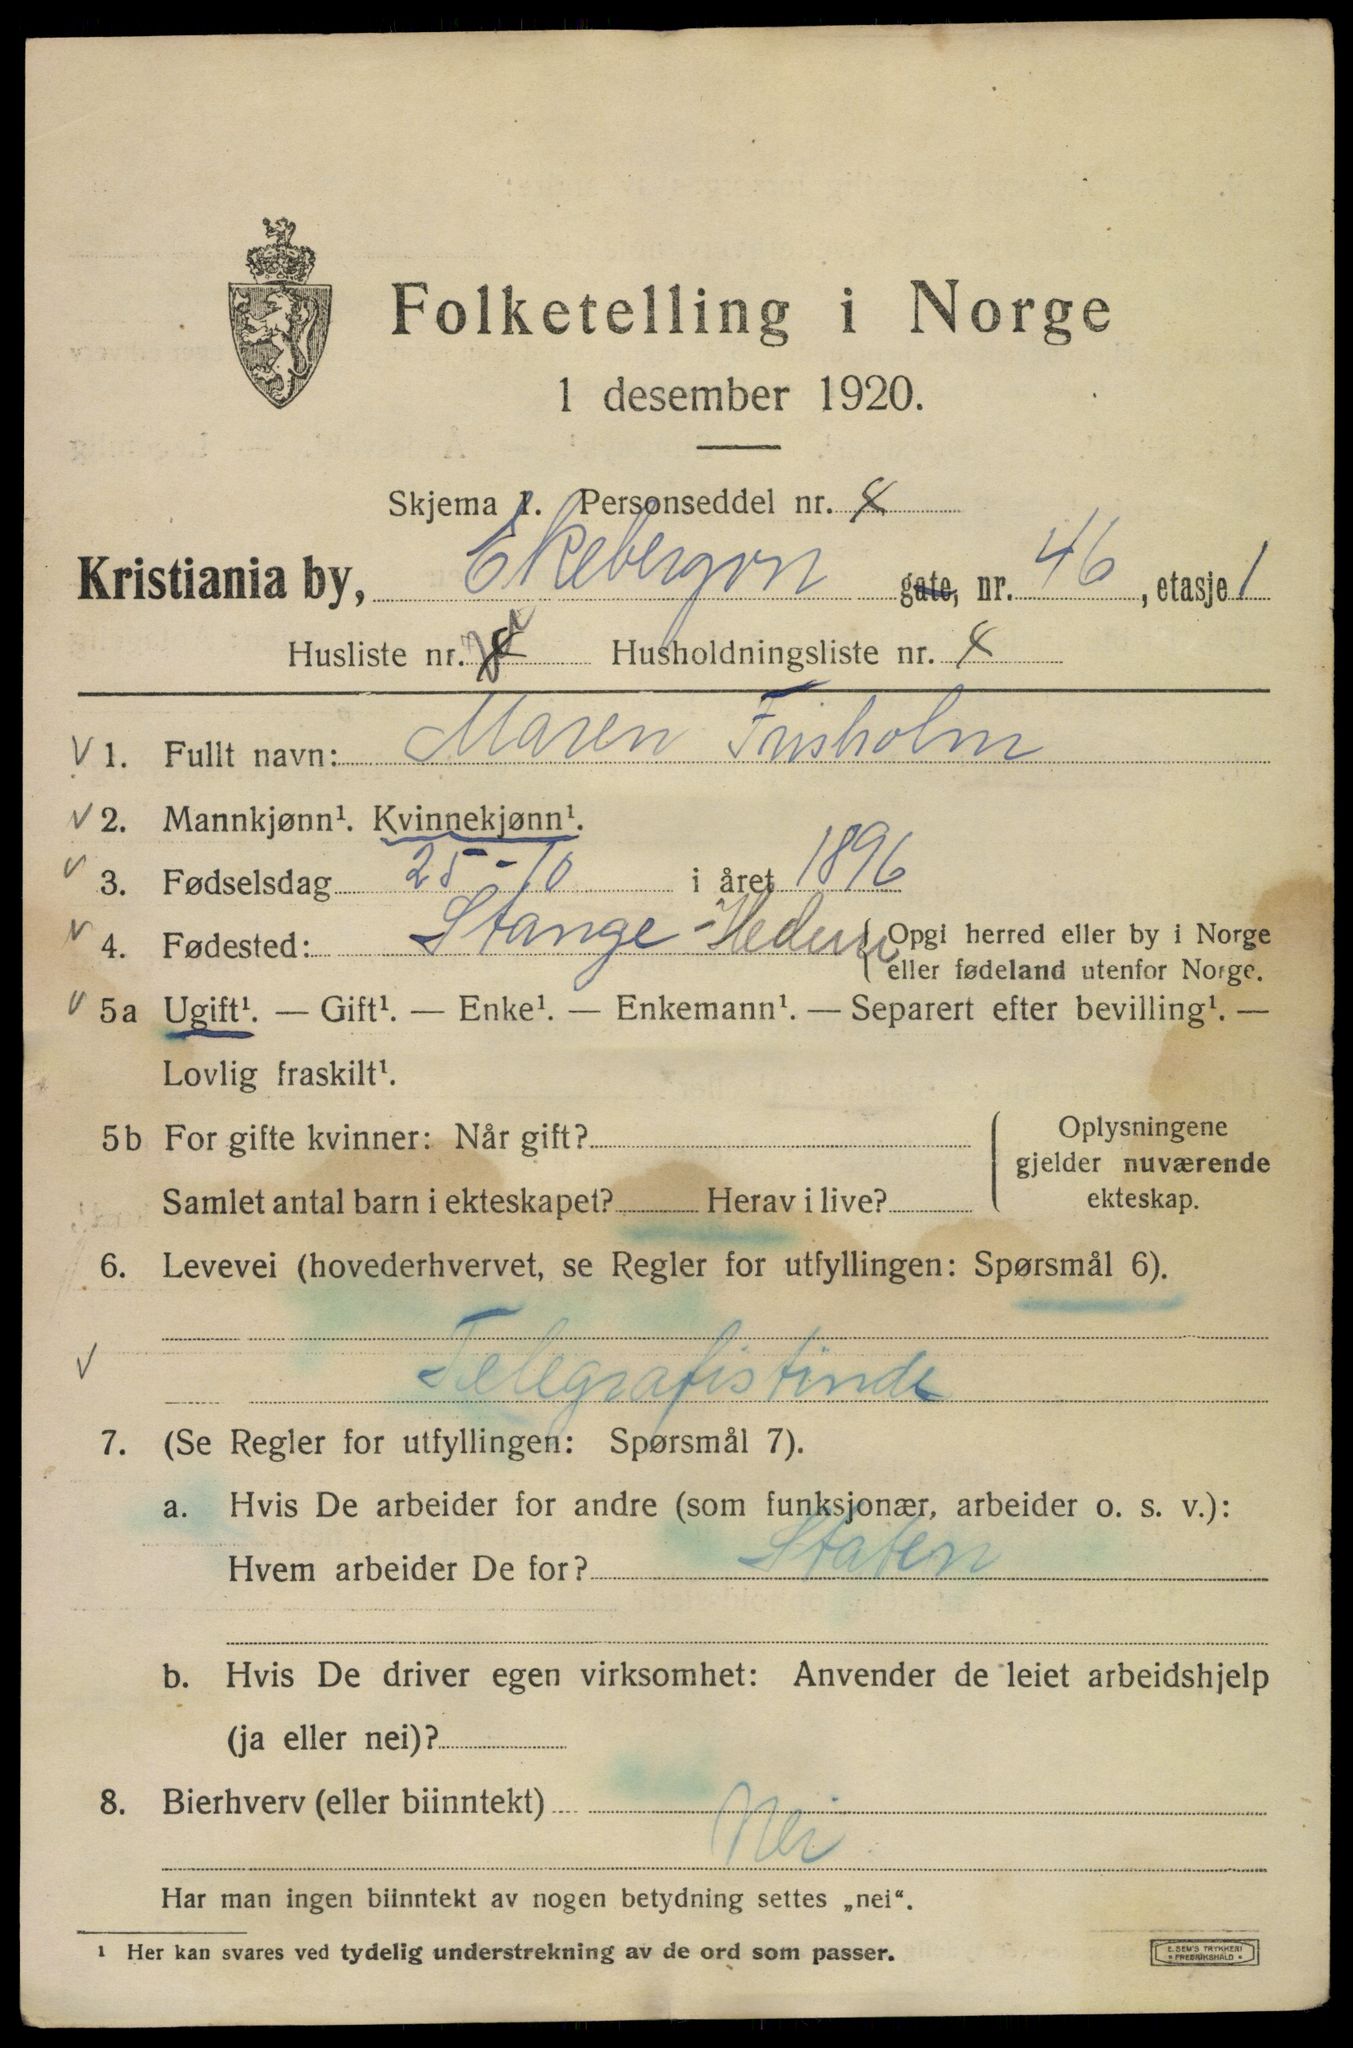 Folketelling i Norge
1 desember 1920.
Skjema 1. Personseddel nr. 4
Kristiania by, Ekebergvn gate, nr. 46, etasje 1
Husliste nr. Husholdningsliste nr.
1. Fullt navn: Maren Frisholm
2. Mannkjønn¹. Kvinnekjønn¹.
3. Fødselsdag 25-10 i året 1896
4. Fødested: Stange - Hedm { Opgi herred eller by i Norge
eller fødeland utenfor Norge.
5a Ugift¹. — Gift¹. — Enke¹. — Enkemann¹. — Separert efter bevilling¹. —
Lovlig fraskilt¹.
5b For gifte kvinner: Når gift?
Samlet antal barn i ekteskapet? Herav i live?
Oplysningene
gjelder nuværende
ekteskap.
6. Levevei (hovederhvervet, se Regler for utfyllingen: Spørsmål 6).
Telegrafistinde
7. (Se Regler for utfyllingen: Spørsmål 7).
a. Hvis De arbeider for andre (som funksjonær, arbeider o. s. v.):
Hvem arbeider De for? Staten
b. Hvis De driver egen virksomhet: Anvender de leiet arbeidshjelp
(ja eller nei)?
8. Bierhverv (eller biinntekt)
Nei
Har man ingen biinntekt av nogen betydning settes „nei“.
1 Her kan svares ved tydelig understrekning av de ord som passer.
E. SEM'S TRYKKERI
FREDRIKSHALD